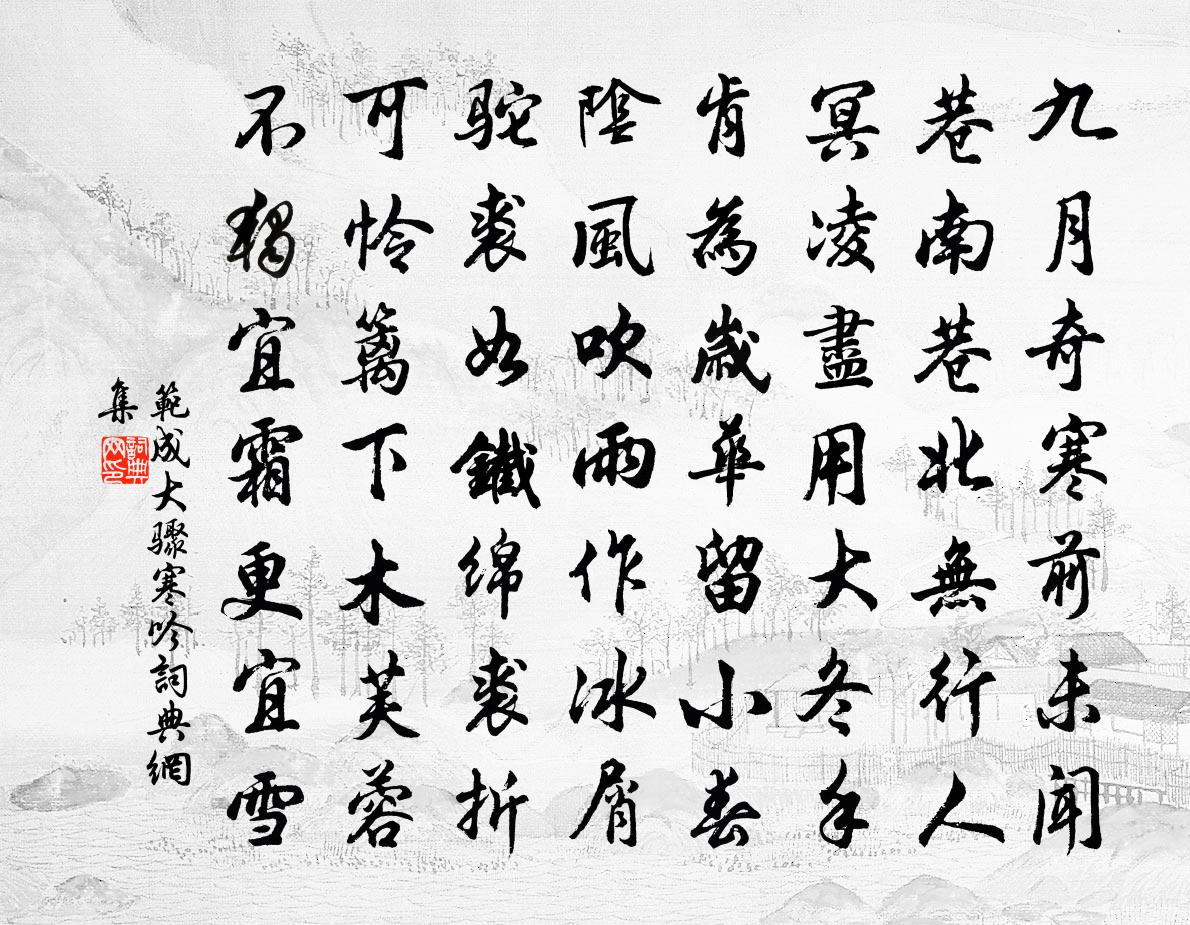 九月奇寒前未聞
巷南巷北無行人
冥凌盡用大冬手
肯為歲華留小春
陰風吹雨作冰屑
駝裘如鐵綿裘折
可怜篱下木芙蓉
不獨宜霜更宜雪
範成大驟寒吟詞典網
集
詞典網印